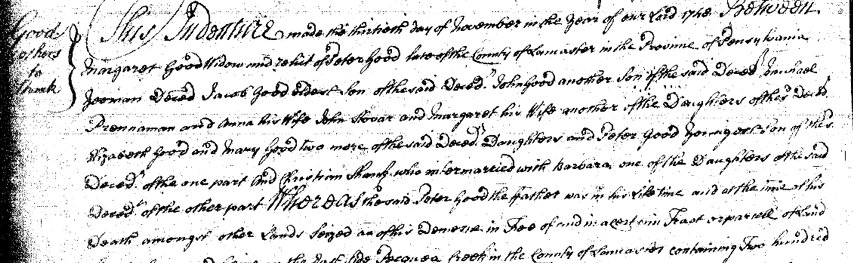 Good
others
to
This Indenture made the thirtieth day of November in the Year of our Lord 1748 Between
Margaret Good Widow and relict of Peter Good late of the County of Lancaster in the Province of Pensylvania
Yeoman Deced Jacob Good Eldest son of the said Deced. John Good another Son of the said Deced
Brennaman and Anna his Wife John Stovar and Margaret his Wife another of the Daughters of the sd Deced
Elizabeth Good and Mary Good two more of the said Deced Daughters and Peter Good youngest son of the sd
Deced of the one part And Christian who intermarried with Barbara one of the Daughters of the said
Deced of the other part Whereas the said Peter Good the ffather was in his Life time and at the time of his
Death amongst other Lands Seized in of his Demesne in Fee of and in a certain Tract or parcell of Land
the side Pecquea Creek in the County of Lancaster containing Two hundred